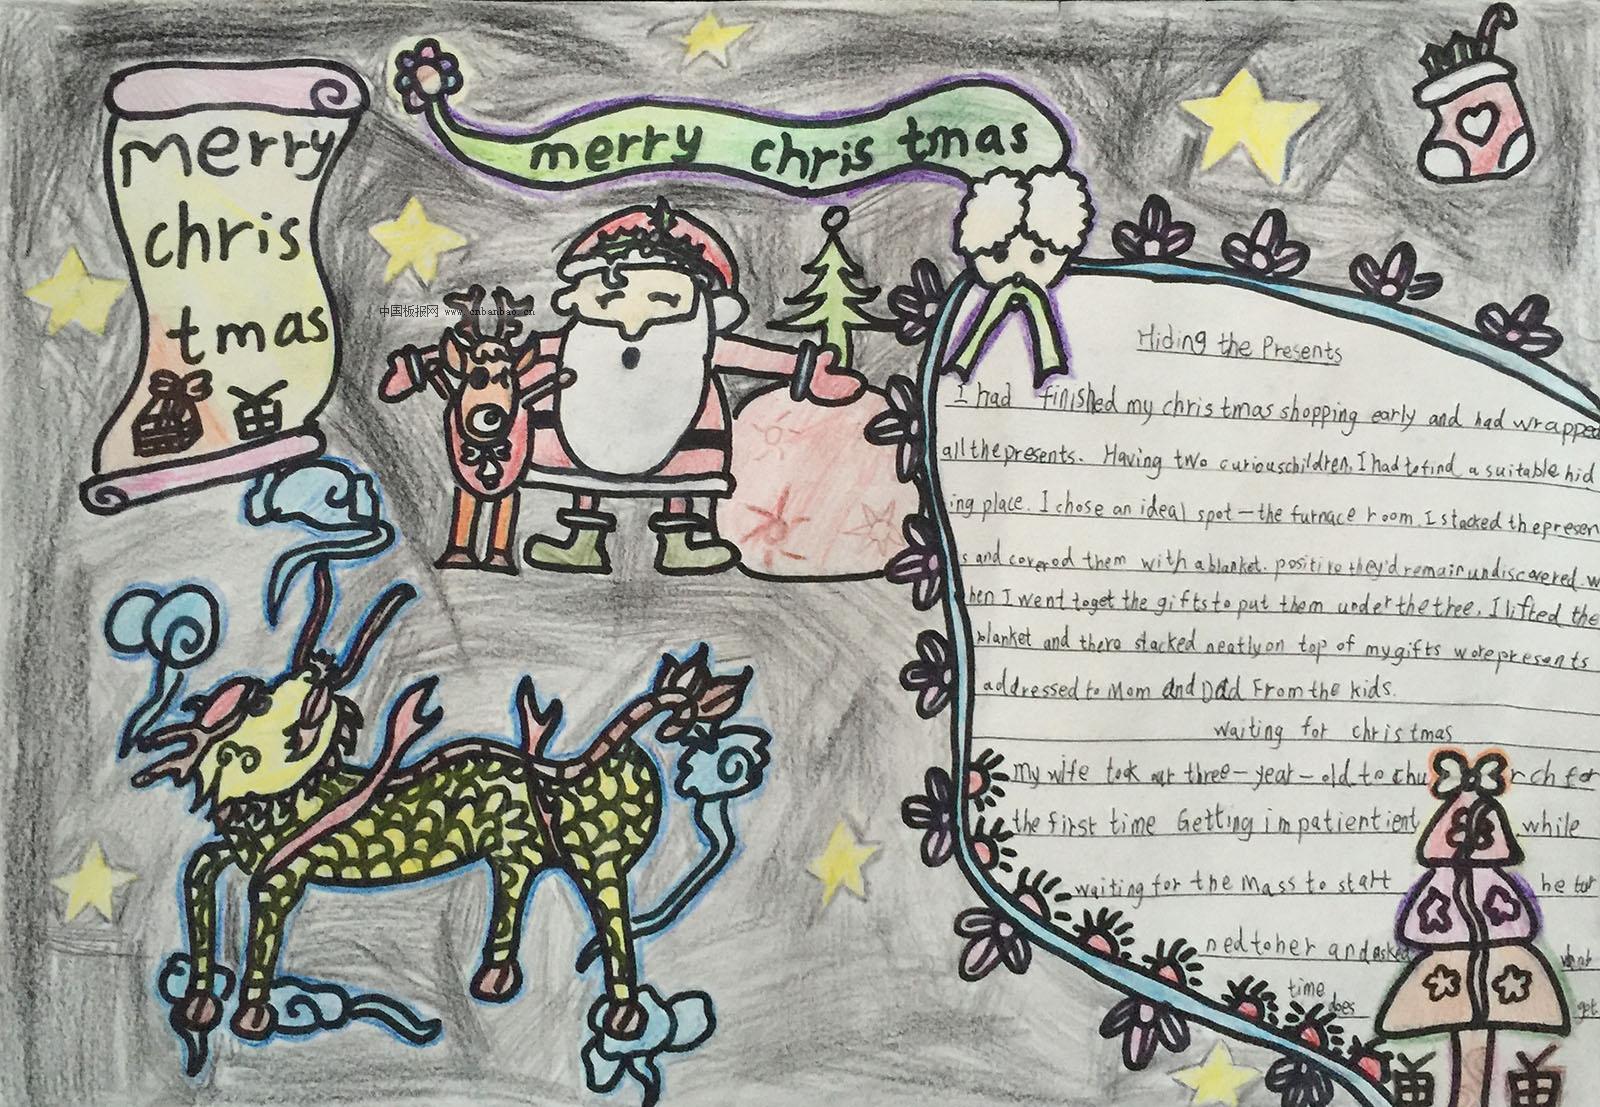 merry
chris
tmas
merry chris tmas
中国板报网 www.cnbanbao.cn
Hiding the Presents
I had finished my chris tmas shopping early and had wrapped
all the presents. Having two curiouschildren, I had to find a suitable hid
ing place. I chose an ideal spot — the furnace room. I stacked the presen
s and covered them with a blanket. positive they'd remain undiscovered. w
hen I went to get the gifts to put them under the thee, I lifted the
blanket and there stacked neatly on top of my gifts were presents
addressed to Mom and Dad From the kids.
waiting for chris tmas
My wife took our three — year — old to chu rch for
the first time Getting impatientient while
waiting for the Mass to start he tur
ned to her and asked what
time does get